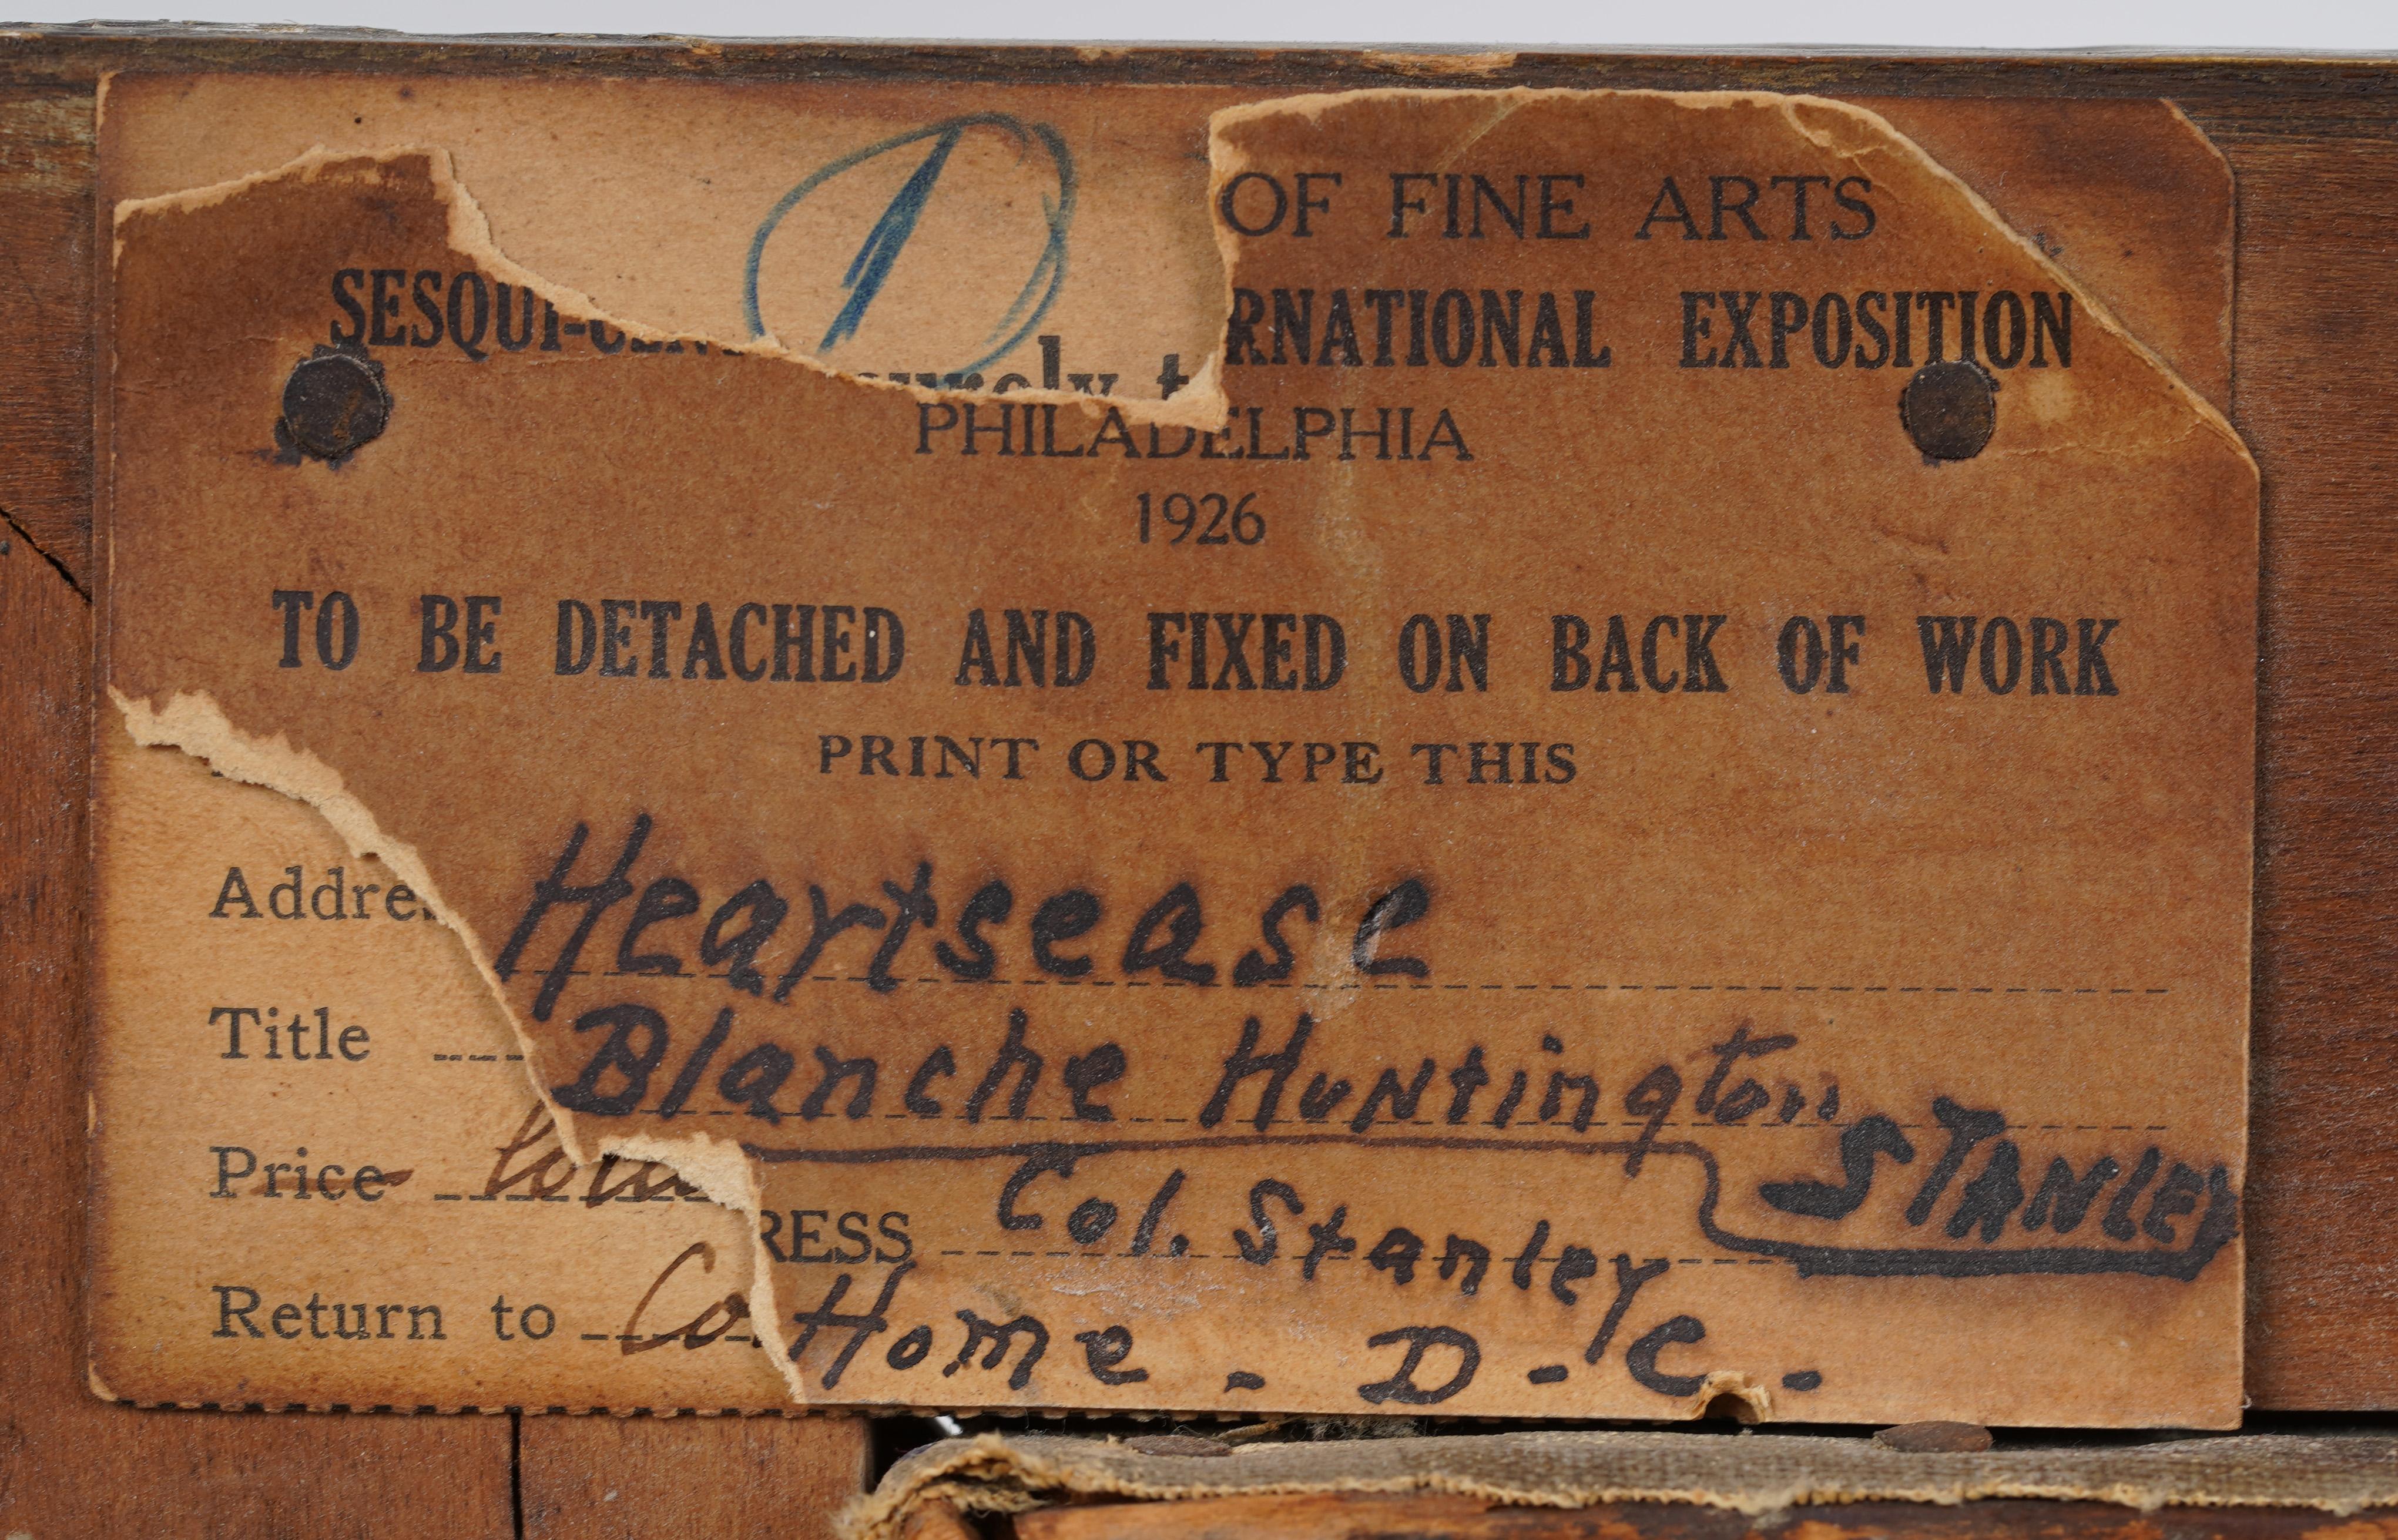 OF FINE ARTS
SESQUI-CENT RNATIONAL EXPOSITION
PHILADELPHIA
1926
TO BE DETACHED AND FIXED ON BACK OF WORK
PRINT OR TYPE THIS
Addre Heartsease
Title Blanche Huntington STANLEY
Price
RESS Col. Stanley
Return to Co Home - D - C -